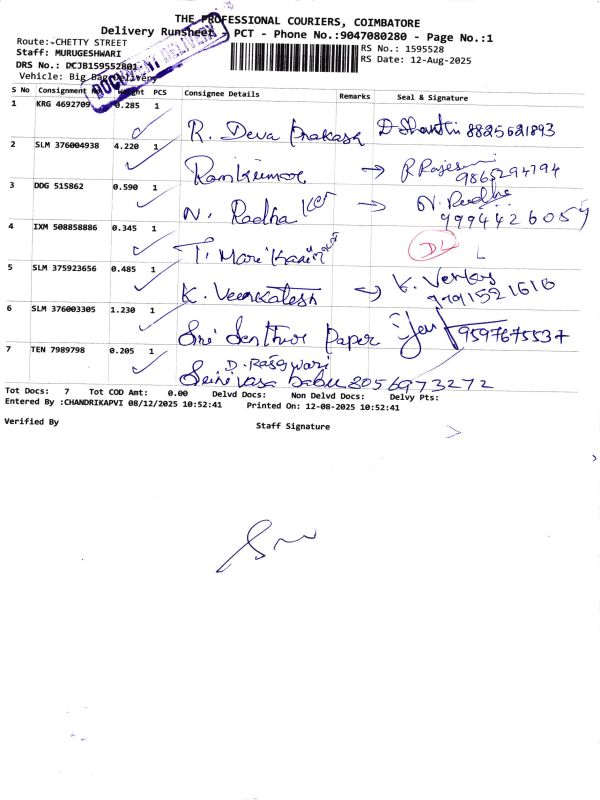 THE PROFESSIONAL COURIERS, COIMBATORE
Delivery Runsheet - PCT - Phone No.:9047080280 - Page No.:1
Route:-CHETTY STREET
Staff: MURUGESHWARI
DRS No.: DCJB159552801
Vehicle: Big Bag Delivery
DOCUMENT DELIVERY
RS No.: 1595528
RS Date: 12-Aug-2025
S No Consignment Weight PCS Consignee Details Remarks Seal & Signature
1 KRG 4692709 0.285 1
R. Deva Prakash D Shanthi 8825621893
2 SLM 376004938 4.220 1
Ramkumar → 9865294794
3 DDG 515862 0.590 1
N. Radha → N. Radha
9994426059
4 IXM 508858886 0.345 1
T. Mari DL
5 SLM 375923656 0.485 1
K. Veenkatesh → K.
6 SLM 376003305 1.230 1
Sri Senthur Paper 9597675537
7 TEN 7989798 0.205 1
D. Rasewari
Srinivasa babu 8056973272
Tot Docs: 7 Tot COD Amt: 0.00 Delvd Docs: Non Delvd Docs: Delvy Pts:
Entered By :CHANDRIKAPVI 08/12/2025 10:52:41 Printed On: 12-08-2025 10:52:41
Verified By
Staff Signature